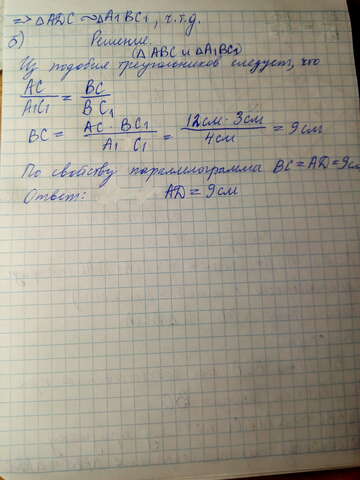 => △ADC ~ △A₁BC₁, ч.т.д.
б) Решение.
(△ABC и △A₁BC₁)
Из подобия треугольников следует, что
AC/A₁C₁ = BC/BC₁
BC = AC · BC₁/A₁C₁ = 12см · 3см/4см = 9см
По свойству параллелограмма BC = AD = 9см
Ответ: AD = 9см